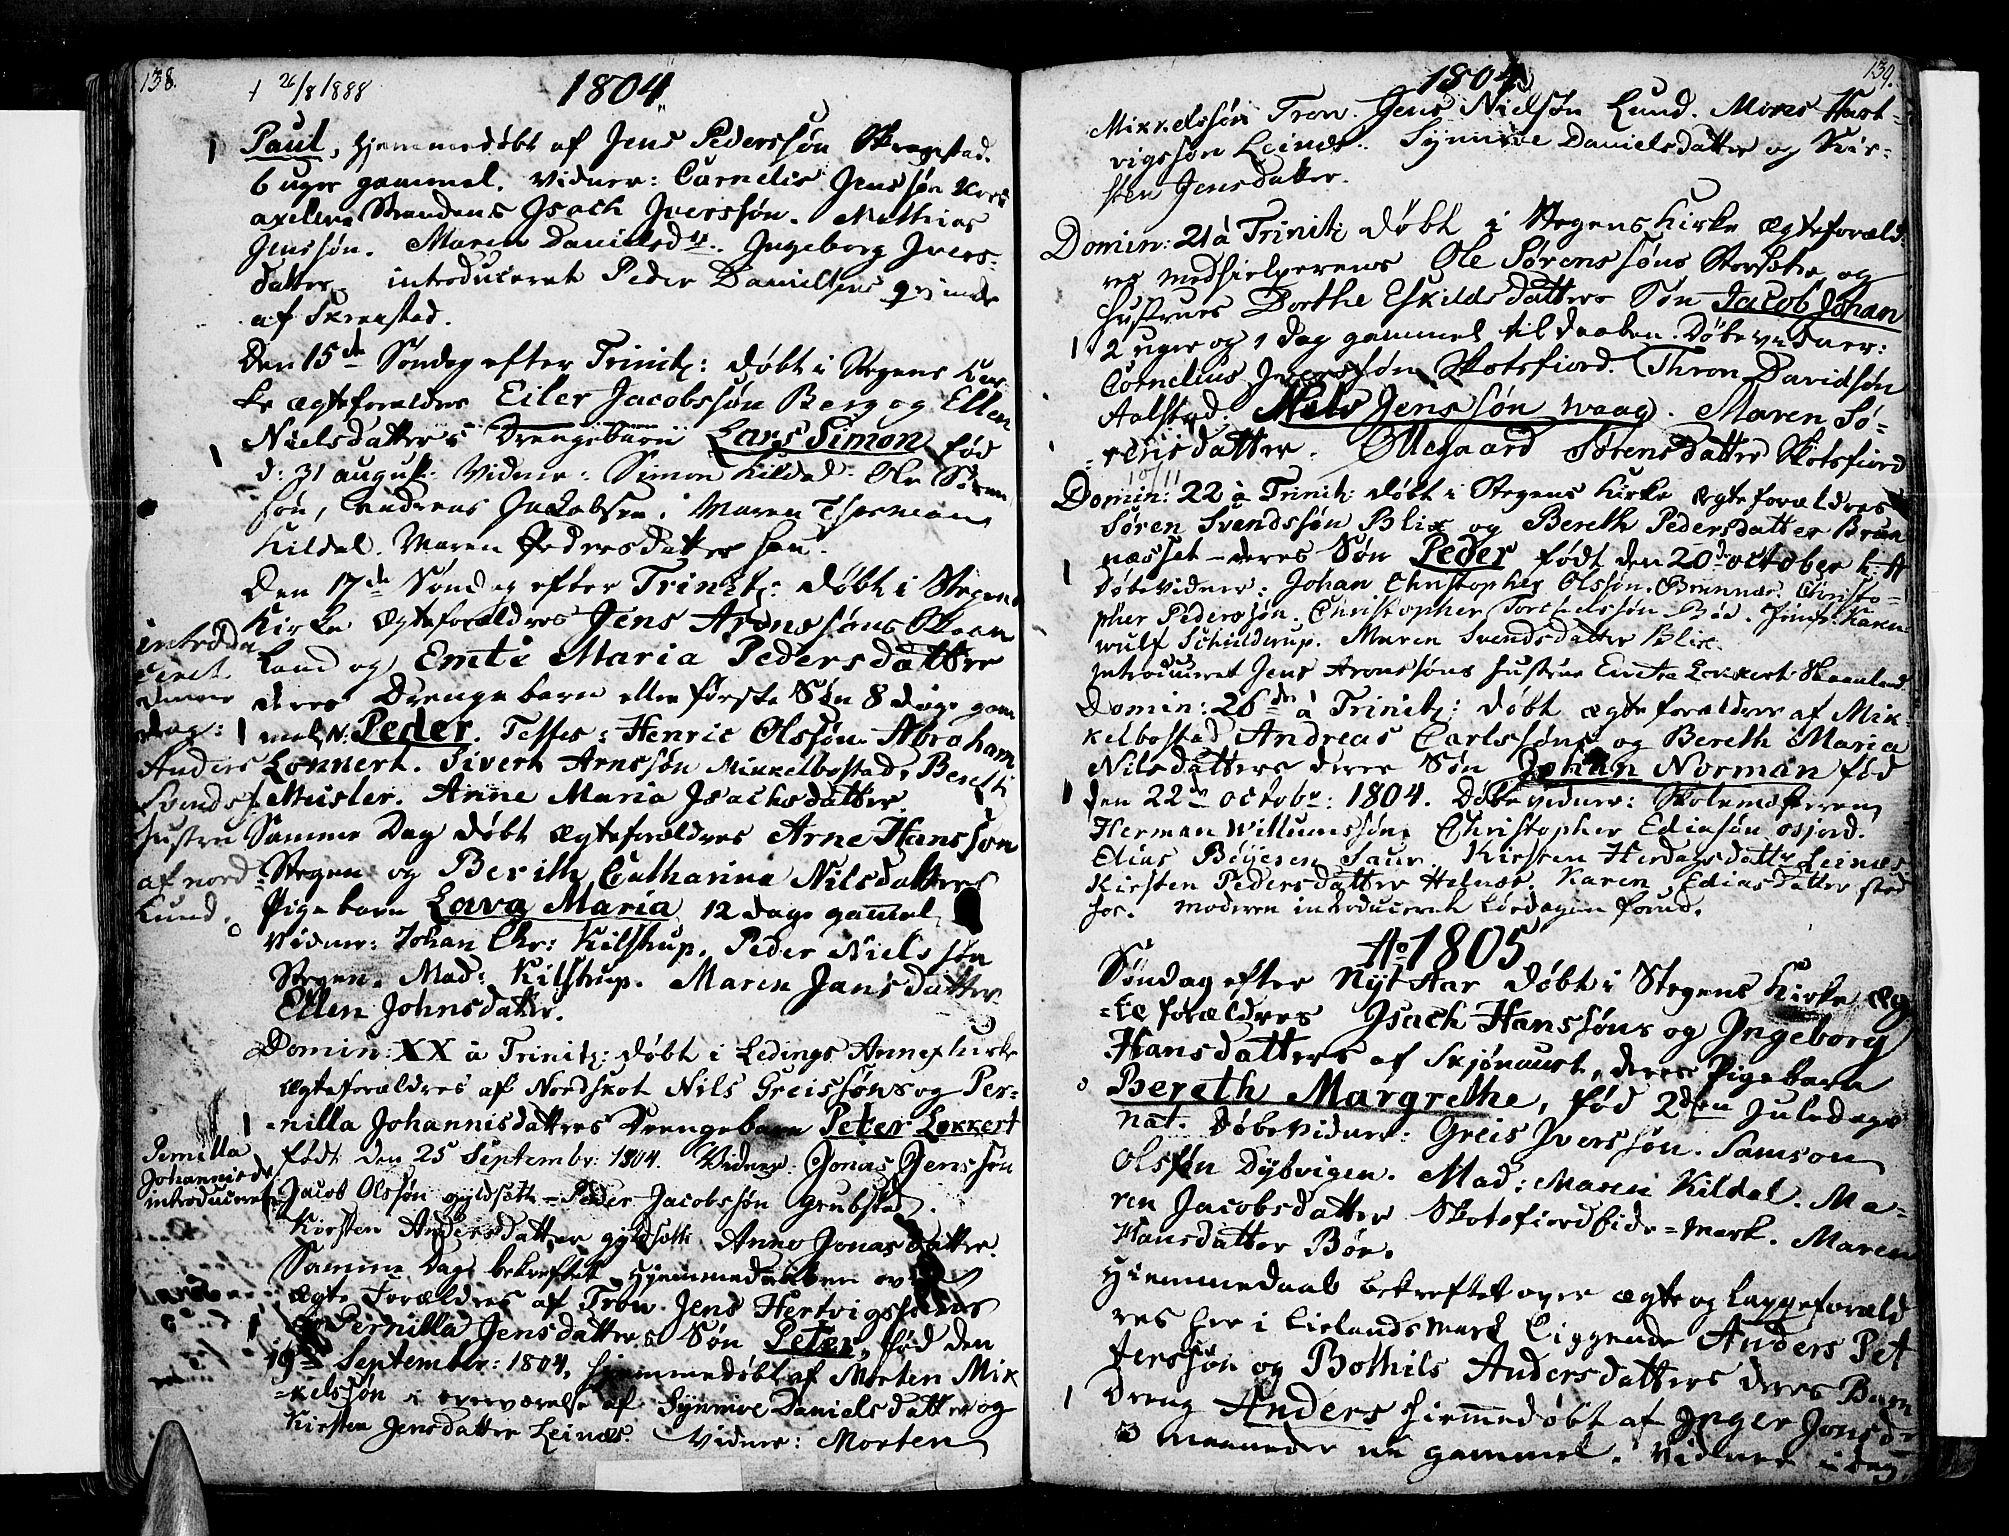 138.
1 26/8 1888
1804
1 Paul, hjemmedøbt af Jens Pederssøn Skrenstad.
6 uger gammel. Vidner: Cornelis Jenssøn
Strandens Isach Iverssøn. Mathias
Jenssøn. Maren Danielsd. Ingeborg Ivers-
datter. introduceret Peder Danielsens qvinde
af Skrenstad.
Den 15de Søndag efter Trinit: døbt i Stegens Kir-
ke ægteforældre Eiler Jacobssøn Berg og Ellen
Nielsdatters Drengebarn Lars Simon, fød
1 d: 31 august: Vidner: Simon Kildal. Ole Søren
søn, Andreas Jacobsen. Maren
Kildal. Maren Pedersdatter
Den 17de Søndag efter Trinit: døbt i Stegens
Kirke ægteforældres Jens Aronssøns Skaan
land og Emti Maria Pedersdatter
deres Drengebarn eller første Søn 8 dage gam
1 mel, N. Peder. Testes: Henric Olssøn. Abraham
Lonnert. Sivert Arnssøn Mikkelbostad, Bereth
Musler. Anne Maria Isachsdatter.
introdu
ceret
denne
dag:
Anders
Svends
hustru
af nord
Lund.
Samme Dag døbt ægteforældres Arne Hanssøn
Stegen og Berith Catharina Nilsdatters
Pigebarn Lava Maria 12 dage gammel
Vidner: Johan Chr: Kilstrup. Peder Nielssøn
Stegen. Mad: Kilstrup. Maren Jansdatter
Ellen Johnsdatter.
Domin: XX à Trinit: døbt i Ledings Annexkirke
ægteforældres af Nordskot Nils Greissøns og Per-
1 nilla Johannisdatters Drengebarn Peter Lekkert
født den 25 Septembr: 1804. Vidner: Jonas Jenssøn
Jacob Olssøn gyldsætt - Peder Jacobssøn Grubsted.
Kirsten Andersdatter gyldsætt. Anne Jonasdatter.
Pernilla
Johannisd
introduceret
Samme Dag bekræftet hjemmedaaben over
ægteforældres af Tron. Jens Hertvigssøns
og Pernilla Jensdatters Søn Peter, fød den
19 September: 1804, hjemmedøbt af Morten Mik
kelssøn i overværelse af Synnove Danielsdatter og
Kirsten Jensdatter Leines. Vidner: Morten
139.
1804
Mikkelssøn Tron. Jens Nielsøn Lund. Mons Hart-
vigssøn Leines. Synnøve Danielsdatter og Kir-
sten Jensdatter.
Domin: 21 à Trinit: døbt i Stegens Kirke ægteforæld-
res medhielperens Ole Sørenssøns Storsætre og
hustrues Dorthe Eskildsdatters Søn Jacob Johan
1 2 uger og 1 dag gammel til daaben. Døbevidner:
Cornelius Iverssøn Skotsfiord. Thron Davidsøn
Aalstad. Niels Jenssøn waag. Maren Sø-
rensdatter. Ollegaard Sørensdatter Skotsfiord
10/11
Domin: 22 à Trinit: døbt i Stegens Kirke ægteforældres
Søren Svendssøn Blix og Bereth Pedersdatter Brun
næsset - deres Søn Peder født den 20de october h. A
1 Døbevidner: Johan Christopher Olssøn. Brennes. Christo-
pher Pederssøn. Christopher Bød. Jomfr. Karen
wulf Schielderup. Maren Svendsdatter Blix.
Introduceret Jens Aronssøns hustrue Emtia Lekkert Skaanland.
Domin: 26de à Trinit: døbt ægteforældre af Mik-
kelbostad Andreas Carlssøns og Bereth Maria
Nilsdatters deres Søn Johan Norman fød
1 den 22de octobr: 1804. Døbevidner: Skolemesteren
Herman Willumssøn, Christopher Ediasøn osjord.
Edias Bøyesen Saur. Kirsten Herdagsdattr Leines
Kirsten Pedersdatter Helnes. Karen Ediasdatter sted
hos. Moderen introduceret Løverdagen forud.
Ao 1805
Søndag efter Nyt Aar døbt i Stegens Kirke æg
te forældres Isach Hanssøns og Ingeborg
Hansdatters af Skjønaust, deres Pigebarn
Bereth Margrethe, fød 2den Juledags
nat. Døbevidner: Greis Iverssøn. Samson
Olssøn Dybvigen. Mad: Maren Kildal. Ma-
ren Jacobsdatter Skotsfiordfide-mark. Maren
Hansdatter Bør.
Hiemmedaab bekræftet over ægte og lappeforæld
res her i Leelands Mark liggende Anders Pet
terssøn og Bothils Andersdatters deres Barn
1 dreng Anders hiemmedøbt af Inger Jonsd
maaneder nu gammel. Vidner idag